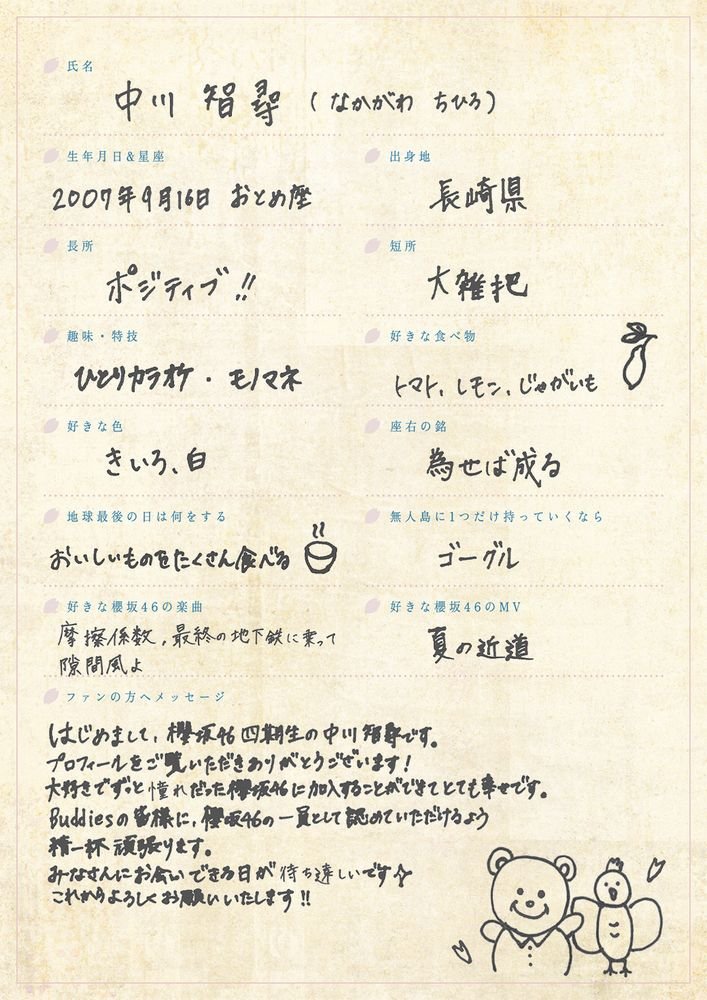 氏名
中川 智尋 (なかがわ ちひろ)
生年月日&星座
2007年9月16日 おとめ座
出身地
長崎県
長所
ポジティブ!!
短所
大雑把
趣味・特技
ひとりカラオケ・モノマネ
好きな食べ物
トマト、レモン、じゃがいも
好きな色
きいろ、白
座右の銘
為せば成る
地球最後の日は何をする
おいしいものをたくさん食べる
無人島に1つだけ持っていくなら
ゴーグル
好きな櫻坂46の楽曲
摩擦係数、最終の地下鉄に乗って
隙間風よ
好きな櫻坂46のMV
夏の近道
ファンの方へメッセージ
はじめまして、櫻坂46四期生の中川智尋です。
プロフィールをご覧いただきありがとうございます!
大好きでずっと憧れだった櫻坂46に加入することができてとても幸せです。
Buddiesの皆様に、櫻坂46の一員として認めていただけるよう
精一杯頑張ります。
みなさんにお会いできる日が待ち遠しいです☆
これからよろしくお願いいたします!!